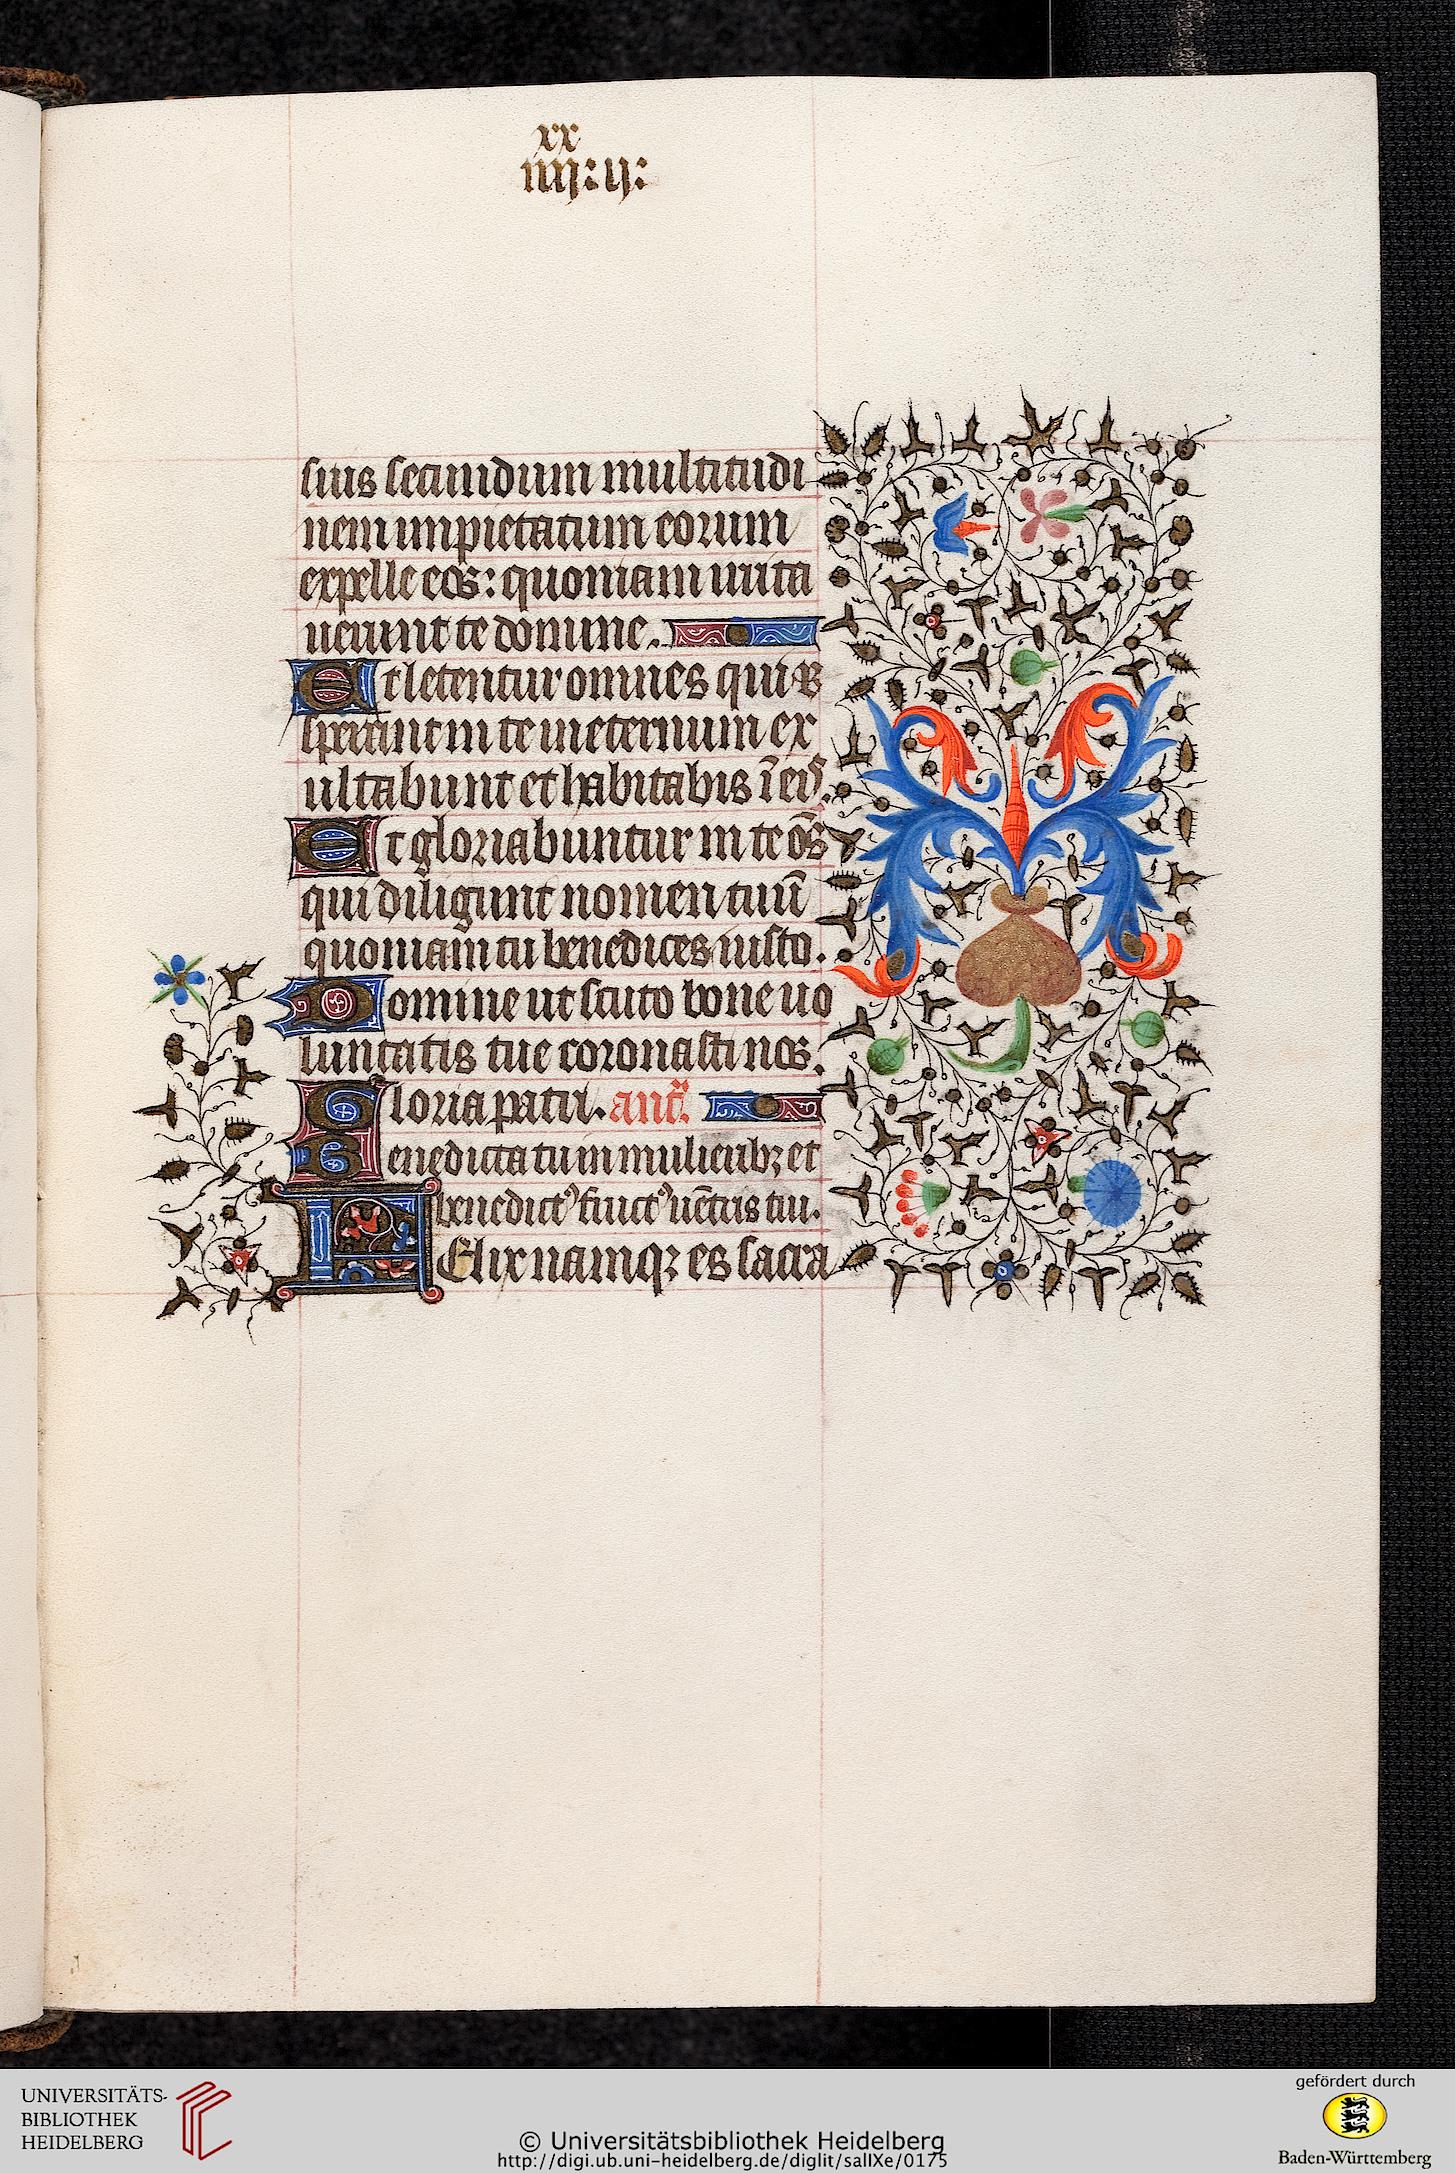 xx
iiij:ij:
suis secundum multitudi
nem impietatum eorum
expelle eos: quoniam irrita
uerunt te domine.
Et letentur omnes qui
sperant in te in eternum ex
ultabunt et habitabis ī eis.
Et gloriabuntur in te oēs
qui diligunt nomen tuū
quoniam tu benedices iusto.
Domine ut scuto bone uo
luntatis tue coronasti nos.
Gloria patri. anta.
Benedicta tu in mulieribꝫ et
benedictꝰ fructꝰ uētris tui.
FElix namqꝫ es sacra
UNIVERSITÄTS-
BIBLIOTHEK
HEIDELBERG
© Universitätsbibliothek Heidelberg
http://digi.ub.uni-heidelberg.de/diglit/salIXe/0175
gefördert durch
Baden-Württemberg